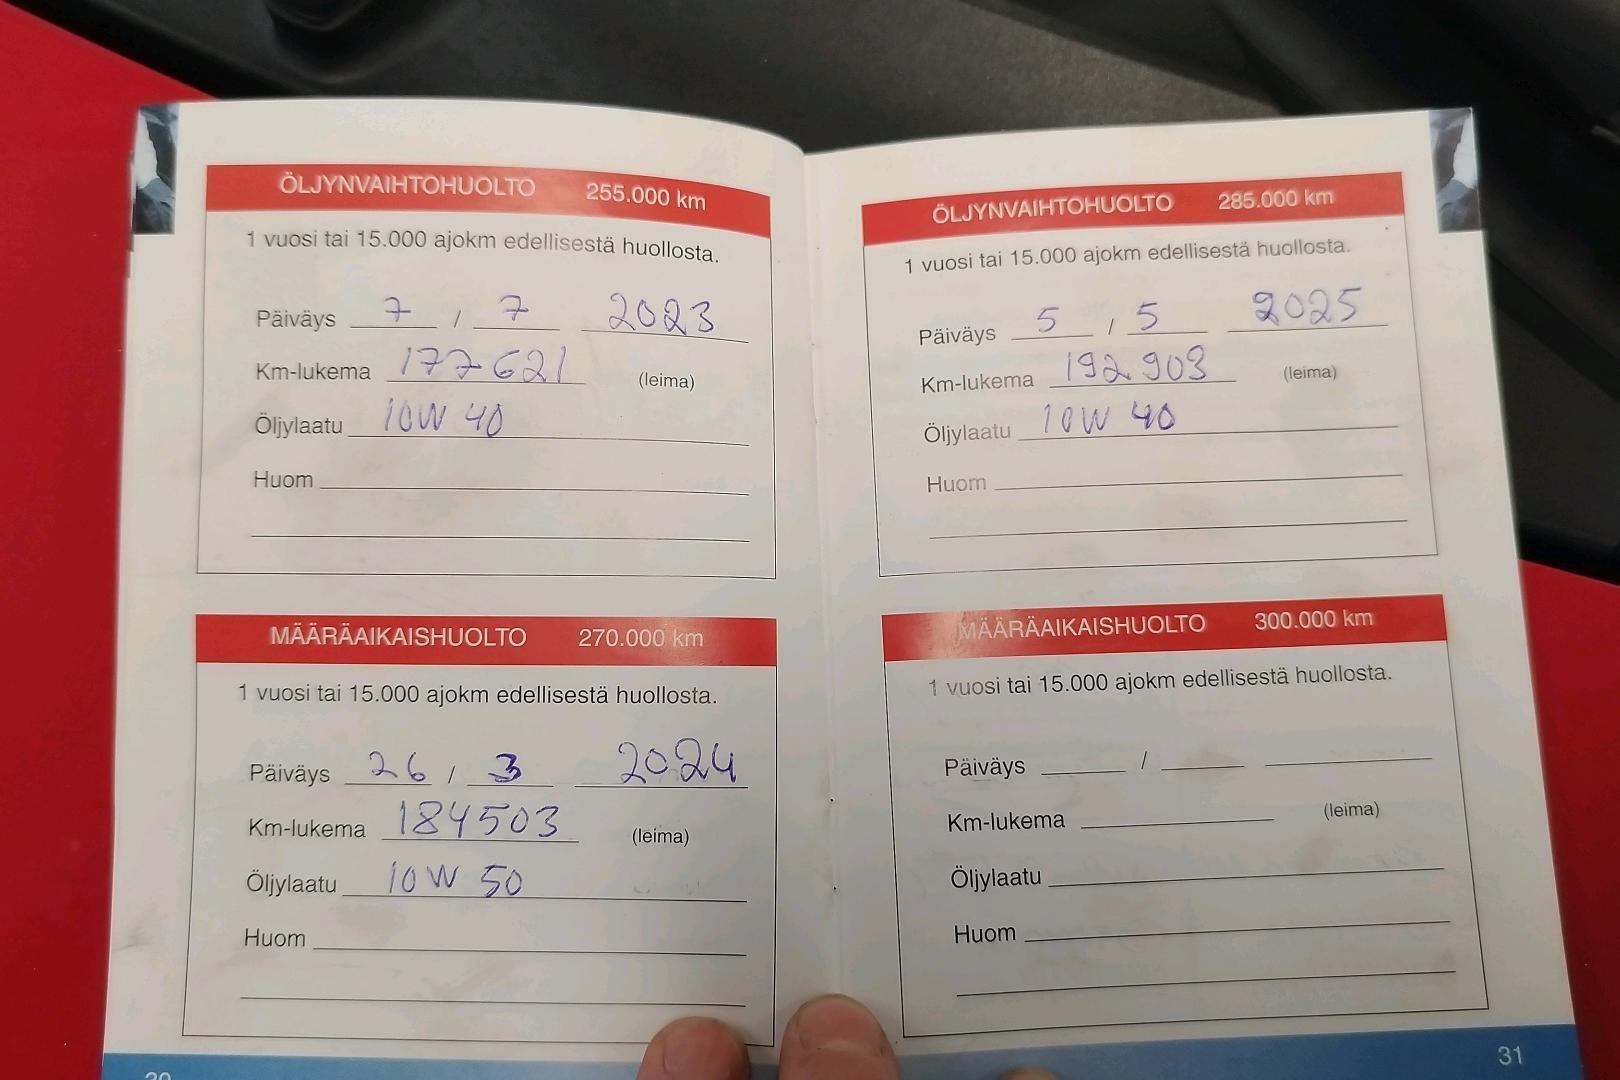 ÖLJYNVAIHTOHUOLTO 255.000 km
1 vuosi tai 15.000 ajokm edellisestä huollosta.
Päiväys 7 / 7 2023
Km-lukema 177621 (leima)
Öljylaatu 10W 40
Huom
MÄÄRÄAIKAISHUOLTO 270.000 km
1 vuosi tai 15.000 ajokm edellisestä huollosta.
Päiväys 26 / 3 2024
Km-lukema 184503 (leima)
Öljylaatu 10W 50
Huom
ÖLJYNVAIHTOHUOLTO 285.000 km
1 vuosi tai 15.000 ajokm edellisestä huollosta.
Päiväys 5 / 5 2025
Km-lukema 192903 (leima)
Öljylaatu 10W 40
Huom
MÄÄRÄAIKAISHUOLTO 300.000 km
1 vuosi tai 15.000 ajokm edellisestä huollosta.
Päiväys /
Km-lukema (leima)
Öljylaatu
Huom
31